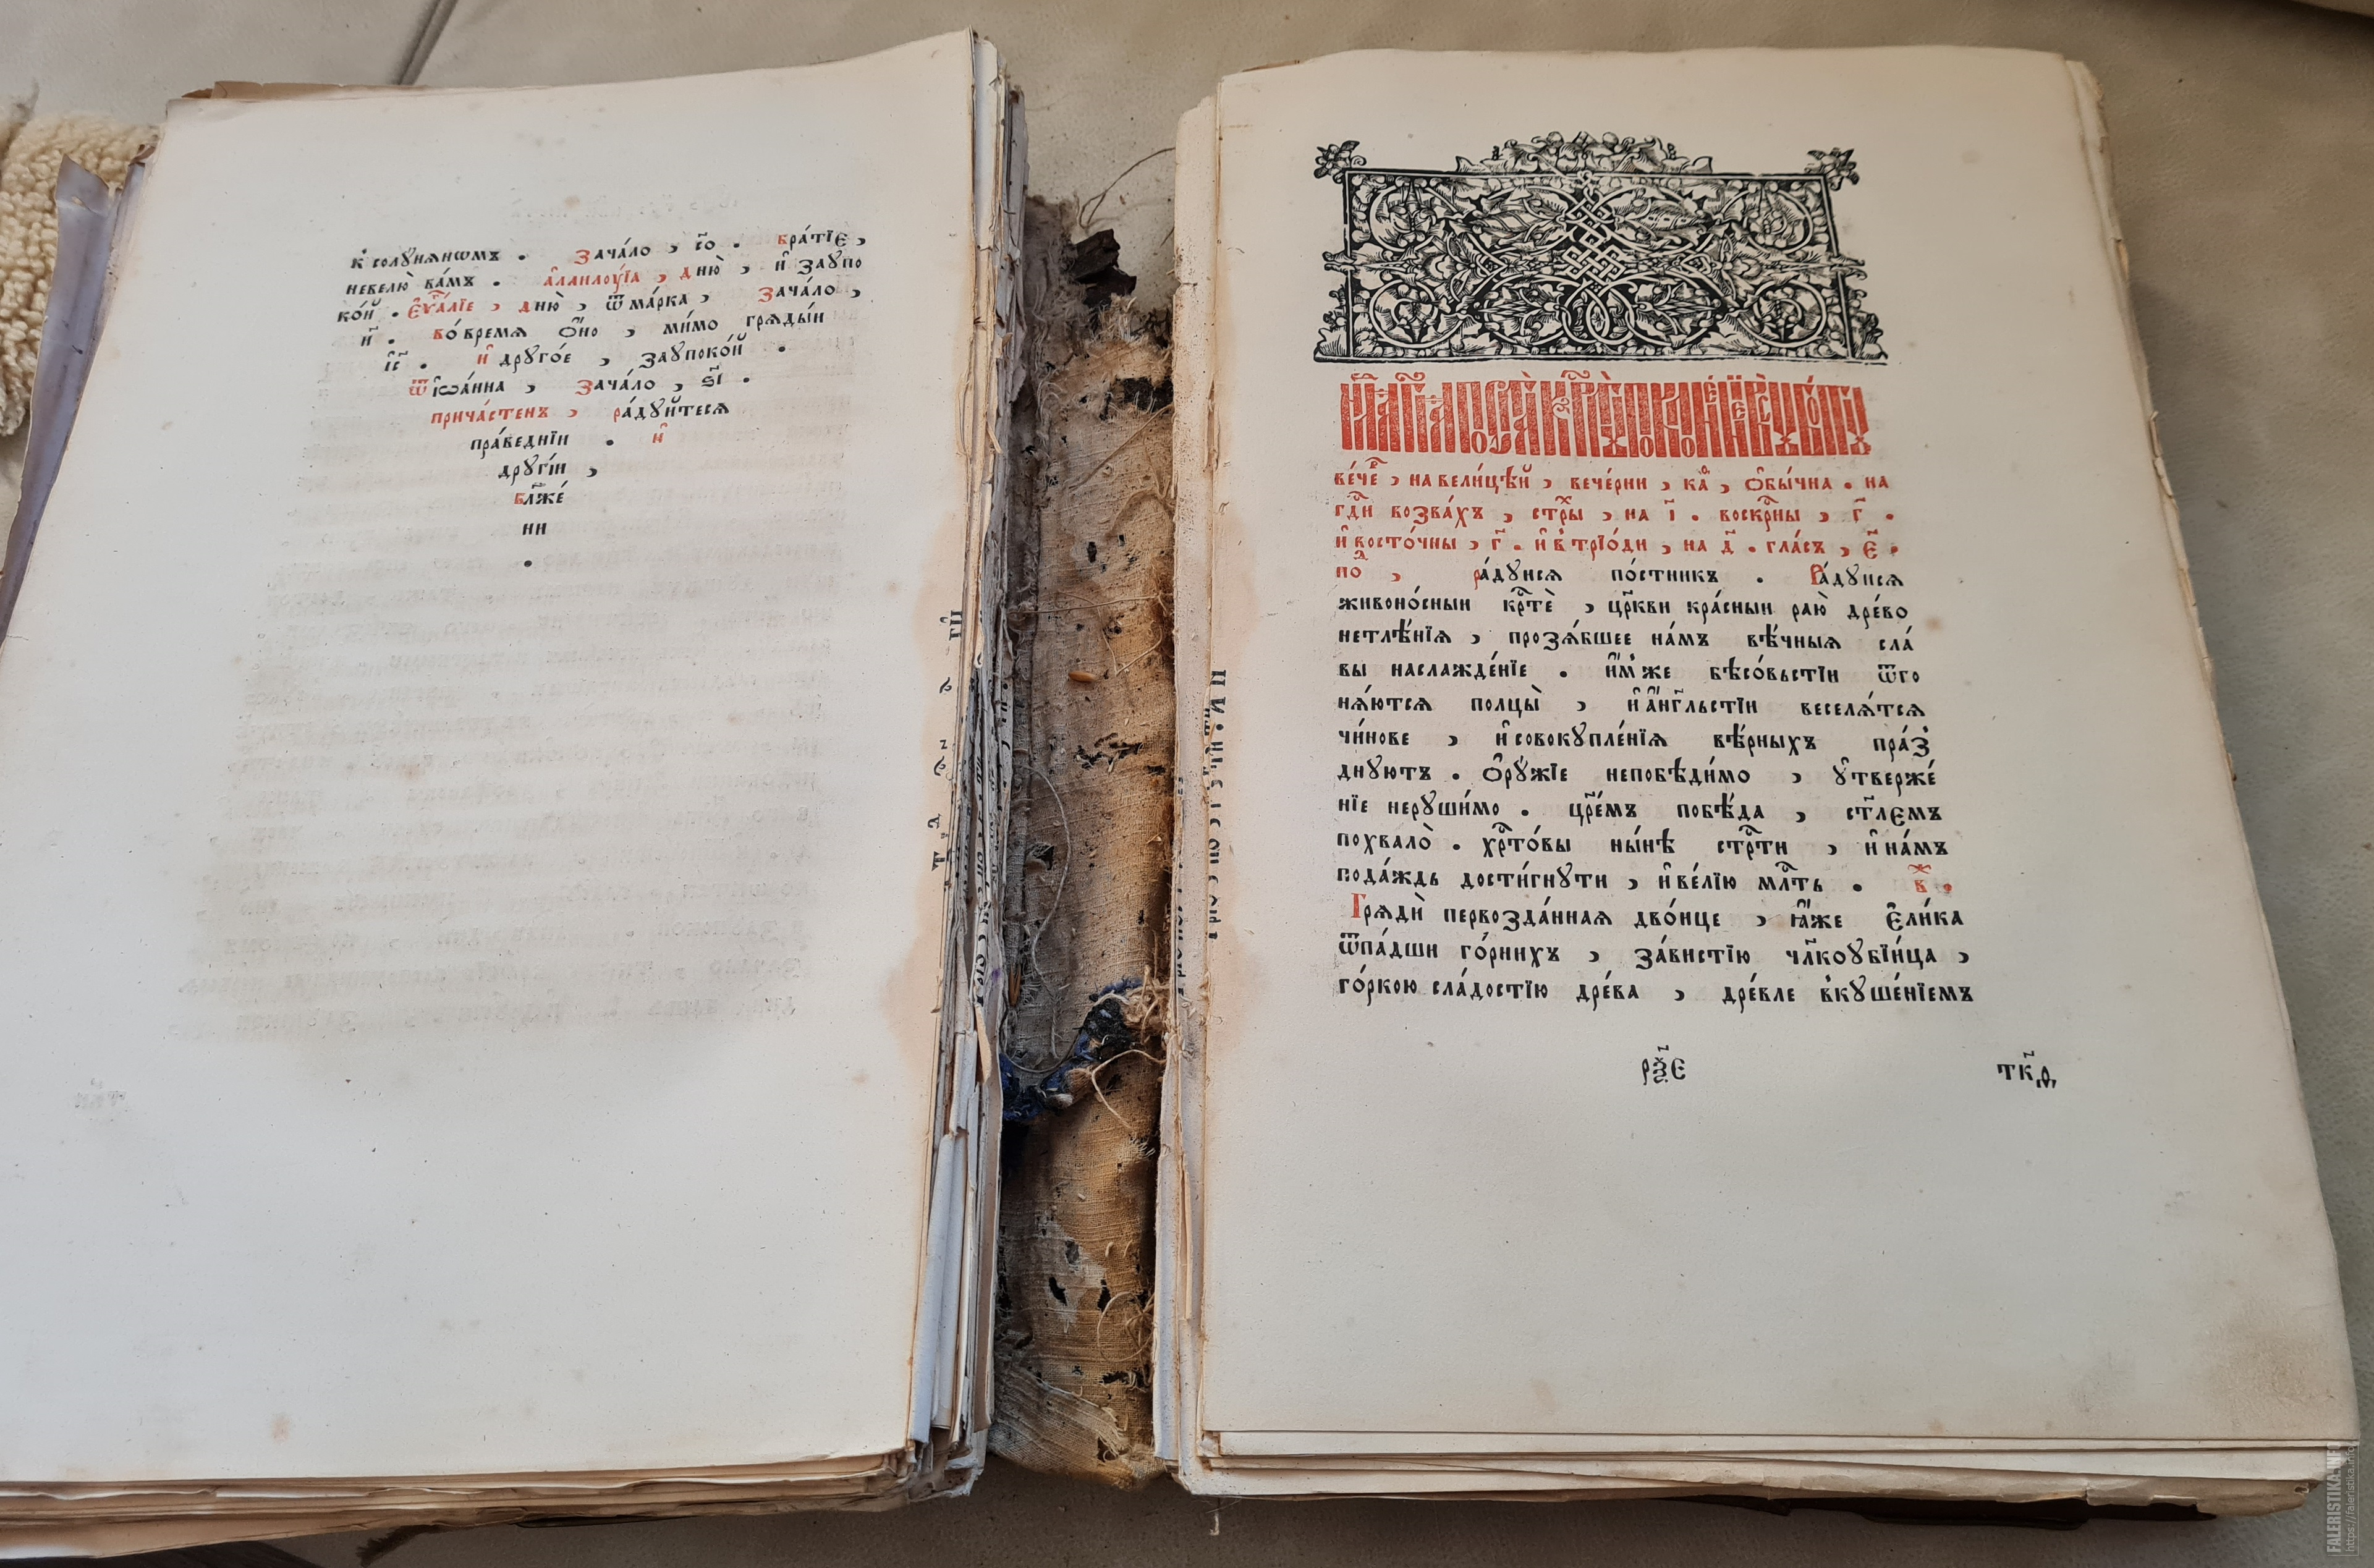 к солꙋнѧнѡмъ . Зача́ло , с҃о . Бра́тїє ,
невелю̀ ва́мъ . а҆ллилꙋ́їа , дню̀ , и҆ заꙋпо
ко́й . Є҆ѵⷢ҇а́лїе , дню̀ , ѿ ма́рка , Зача́ло ,
и҃ . Во́время ѻ҆́но , ми́мо грѧды́и
і҆с҃ . и҆ дрꙋго́е , заꙋпоко́й .
ѿ і҆ѡа́нна , Зача́ло , ѕ҃і .
прича́стенъ , ра́дꙋйтесѧ
пра́веднїи . и҆
дрꙋгі́и ,
бл҃же́
ни
.
ве́чеⷬ҇ , на вели́цѣй , вече́рни , каⷴ҇ , ѻ҆бы́чна . на
гдⷭ҇и возва́хъ , стⷯры , на і҃ . воскрⷭ҇ны , г҃ .
и҆ восто́чны , г҃ . и҆ в̾ трїо́ди , на д҃ . гла́съ , є҃ .
поⷣ , ра́дꙋисѧ по́стникъ . Ра́дꙋисѧ
живоно́сныи крⷭ҇тѐ , цр҃кви кра́сныи раю̀ дре́во
нетлѣ́нїѧ , прозѧ́бшее на́мъ вѣ́чныѧ сла́
вы наслажде́нїе . и҆́мже бѣсо́вьстїи ѿго
нѧ́ютсѧ полцы̀ , и҆ а҆́нг҃льстїи веселѧ́тсѧ
чи́нове , и҆ совокꙋпле́нїѧ вѣ́рныхъ пра́з
днꙋютъ . Ѻ҆рꙋ́жїе непобѣди́мо , ᲂу҆тверже́
нїе нерꙋши́мо . цр҃е́мъ побѣ́да , ст҃лємъ
похвало̀ . хрⷭ҇то́вы ны́нѣ стрⷭ҇ти , и҆ на́мъ
пода́ждь дости́гнꙋти , и҆ ве́лїю млⷭ҇ть . в҃ .
Грѧдѝ первозда́ннаѧ дво́ице , ꙗ҆́же є҆ли́ка
ѿпа́дши го́рнихъ , за́вистїю чл҃коꙋбїи́ца ,
го́ркою сла́достїю дре́ва , дре́вле вкꙋше́нїемъ
рѯ҃є тк҃д
FALERISTIKA.INFO
https://faleristika.info